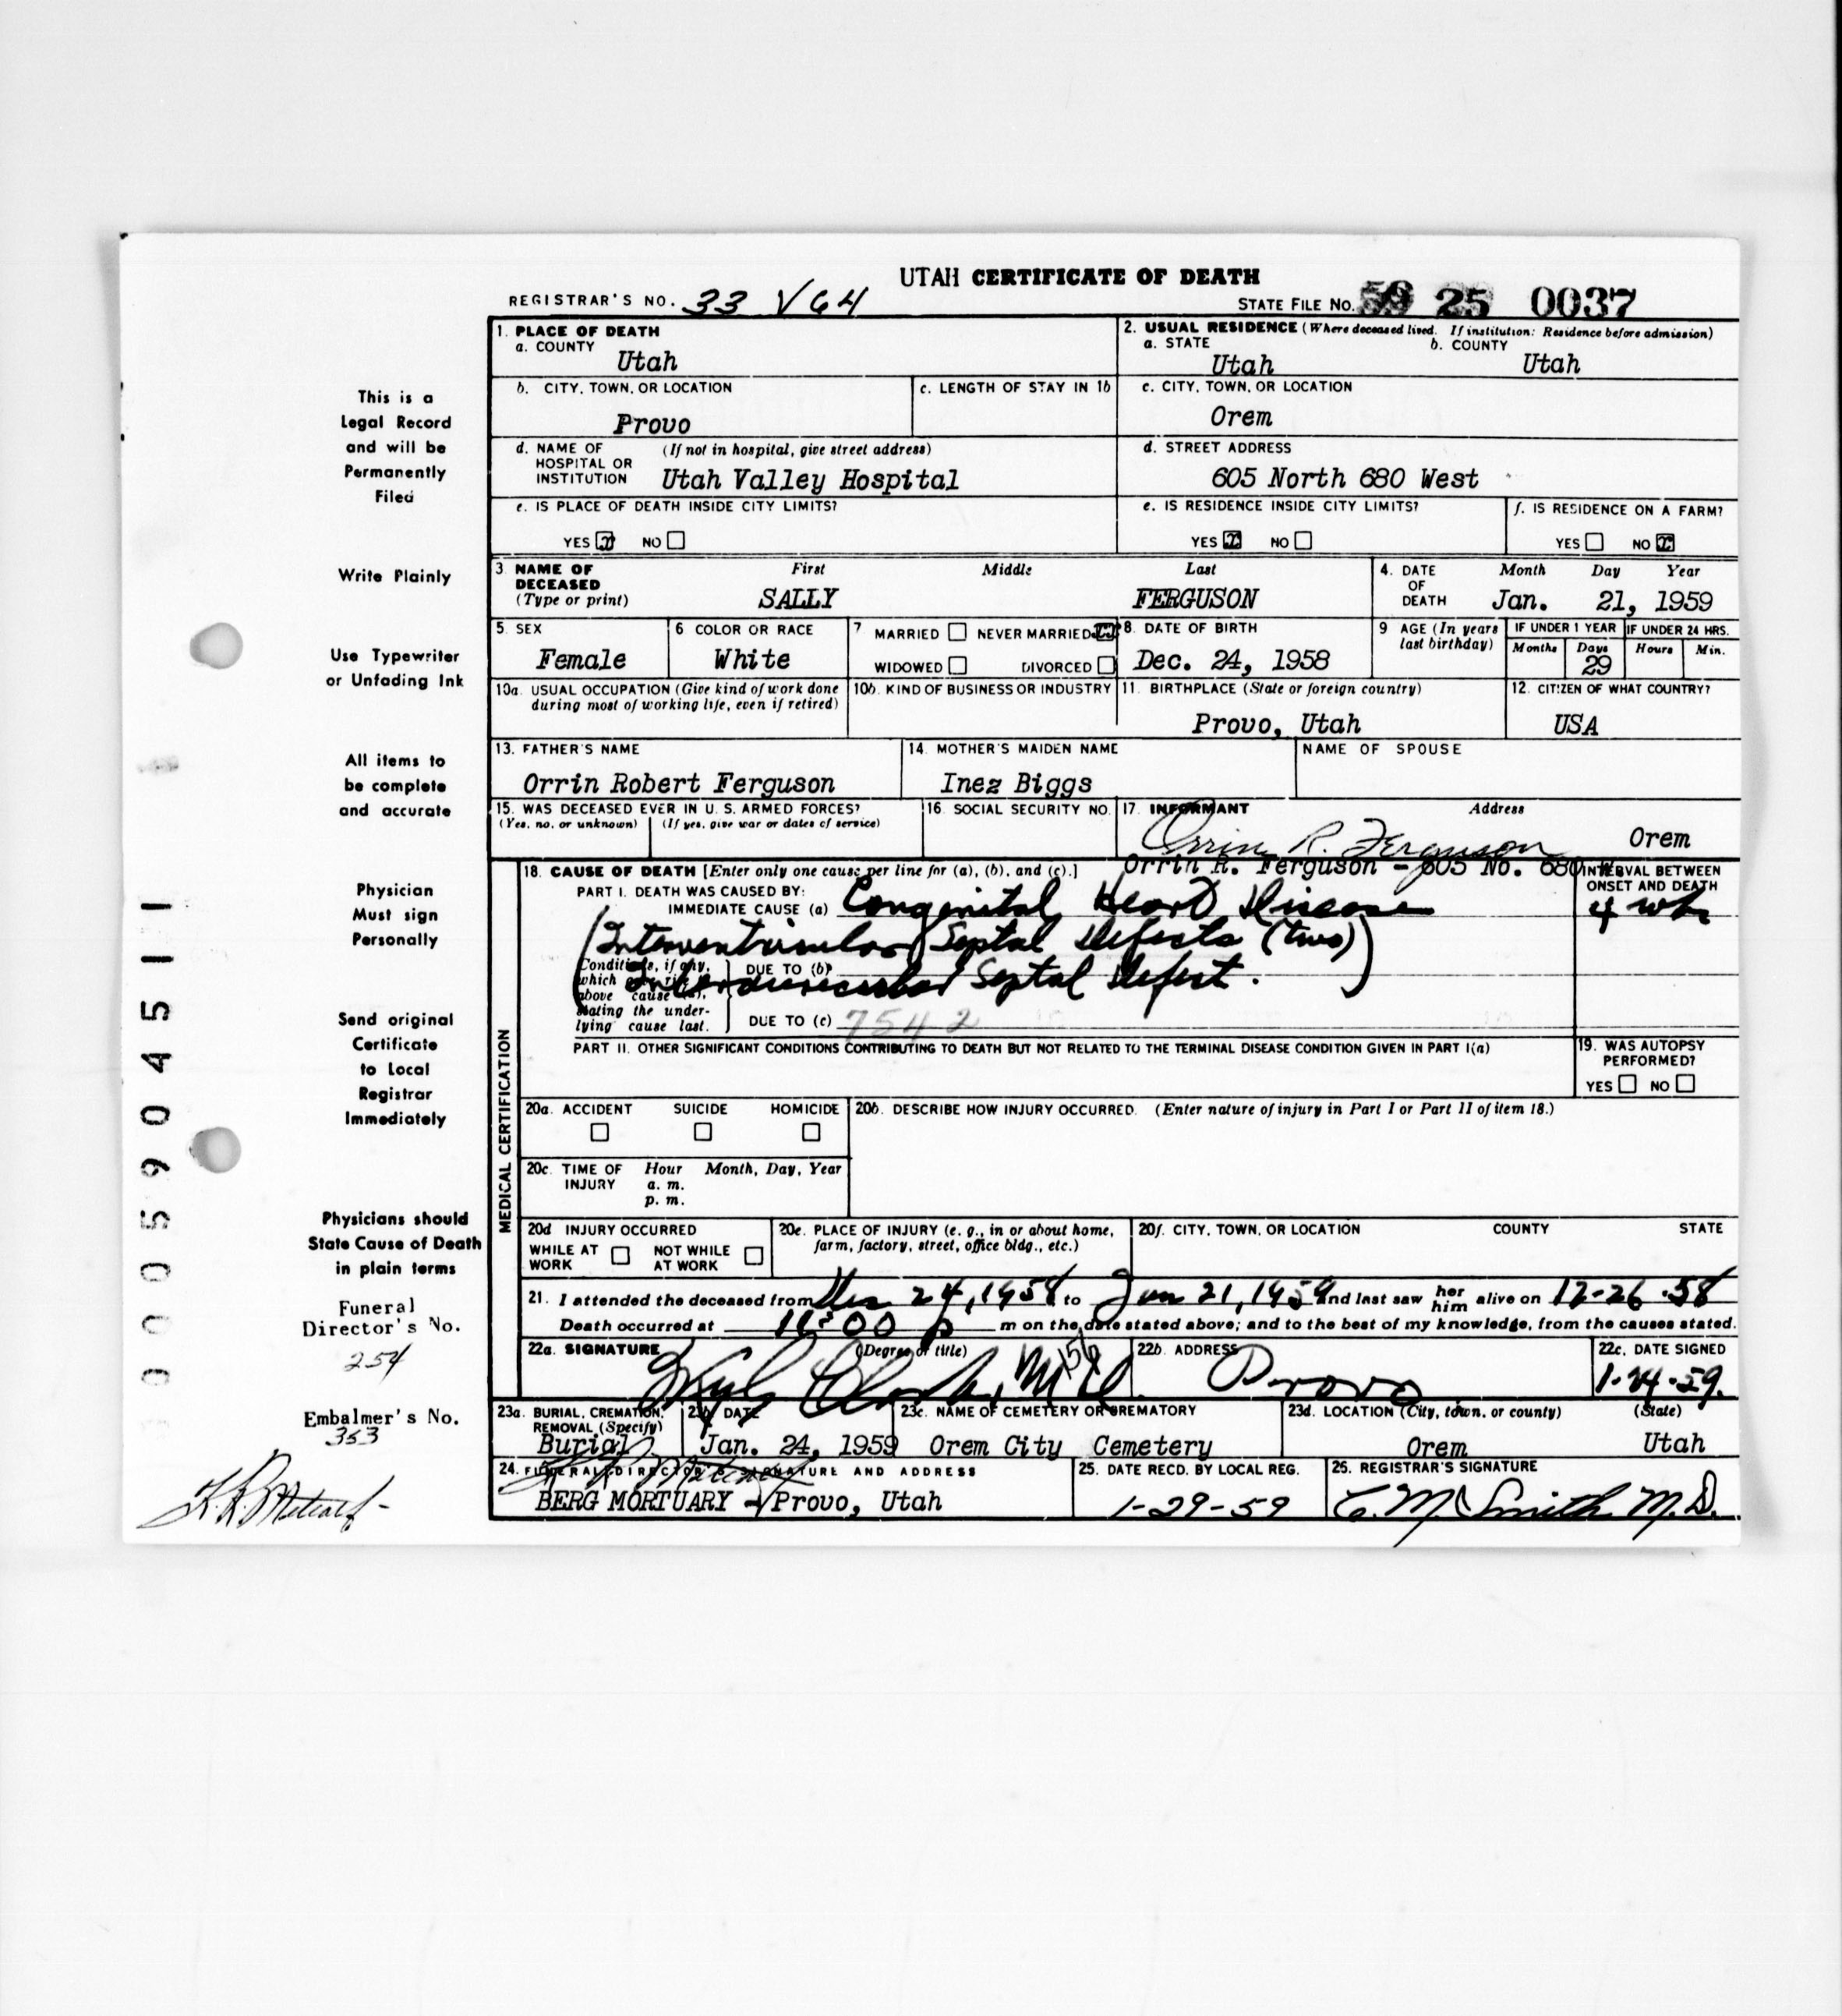 UTAH CERTIFICATE OF DEATH
REGISTRAR'S NO. 33 V64
STATE FILE NO. 59 25 0037
1. PLACE OF DEATH
a. COUNTY
Utah
2. USUAL RESIDENCE (Where deceased lived. If institution: Residence before admission)
a. STATE b. COUNTY
Utah Utah
b. CITY, TOWN, OR LOCATION
Provo
c. LENGTH OF STAY IN 1b
c. CITY, TOWN, OR LOCATION
Orem
d. NAME OF HOSPITAL OR INSTITUTION (If not in hospital, give street address)
Utah Valley Hospital
d. STREET ADDRESS
605 North 680 West
e. IS PLACE OF DEATH INSIDE CITY LIMITS?
YES X NO
e. IS RESIDENCE INSIDE CITY LIMITS?
YES X NO
f. IS RESIDENCE ON A FARM?
YES NO X
3. NAME OF DECEASED (Type or print)
First Middle Last
SALLY FERGUSON
4. DATE OF DEATH Month Day Year
Jan. 21, 1959
5. SEX
Female
6 COLOR OR RACE
White
7 MARRIED NEVER MARRIED X
WIDOWED DIVORCED
8. DATE OF BIRTH
Dec. 24, 1958
9 AGE (In years last birthday)
IF UNDER 1 YEAR IF UNDER 24 HRS.
Months Days Hours Min.
29
10a. USUAL OCCUPATION (Give kind of work done during most of working life, even if retired)
10b. KIND OF BUSINESS OR INDUSTRY
11. BIRTHPLACE (State or foreign country)
Provo, Utah
12. CITIZEN OF WHAT COUNTRY?
USA
13. FATHER'S NAME
Orrin Robert Ferguson
14. MOTHER'S MAIDEN NAME
Inez Biggs
NAME OF SPOUSE
15. WAS DECEASED EVER IN U. S. ARMED FORCES?
(Yes, no, or unknown) (If yes, give war or dates of service)
16. SOCIAL SECURITY NO.
17. INFORMANT Address
Orrin R. Ferguson Orem
Orrin R. Ferguson - 605 No. 680 W
18. CAUSE OF DEATH [Enter only one cause per line for (a), (b), and (c).]
PART I. DEATH WAS CAUSED BY:
IMMEDIATE CAUSE (a) Congenital Heart Disease
(Interventricular Septal Defects (two)
Conditions, if any, which gave rise to above cause (a), stating the under-lying cause last.
DUE TO (b)
Interauricular Septal Defect.)
DUE TO (c) 7542
INTERVAL BETWEEN ONSET AND DEATH
4 wks
PART II. OTHER SIGNIFICANT CONDITIONS CONTRIBUTING TO DEATH BUT NOT RELATED TO THE TERMINAL DISEASE CONDITION GIVEN IN PART I(a)
19. WAS AUTOPSY PERFORMED?
YES NO
MEDICAL CERTIFICATION
20a. ACCIDENT SUICIDE HOMICIDE
20b. DESCRIBE HOW INJURY OCCURRED. (Enter nature of injury in Part I or Part II of item 18.)
20c. TIME OF INJURY Hour Month, Day, Year
a. m.
p. m.
20d INJURY OCCURRED
WHILE AT WORK NOT WHILE AT WORK
20e. PLACE OF INJURY (e. g., in or about home, farm, factory, street, office bldg., etc.)
20f. CITY, TOWN, OR LOCATION COUNTY STATE
21. I attended the deceased from Dec 24, 1958 to Jan 21, 1959 and last saw her him alive on 12-26-58
Death occurred at 11:00 p m on the date stated above; and to the best of my knowledge, from the causes stated.
22a. SIGNATURE (Degree or title)
Clark, M D
22b. ADDRESS
Provo
22c. DATE SIGNED
1-24-59.
23a. BURIAL, CREMATION, REMOVAL (Specify)
Burial
23b. DATE
Jan. 24, 1959
23c. NAME OF CEMETERY OR CREMATORY
Orem City Cemetery
23d. LOCATION (City, town, or county) (State)
Orem Utah
24. FUNERAL DIRECTOR'S SIGNATURE AND ADDRESS
BERG MORTUARY - Provo, Utah
25. DATE RECD. BY LOCAL REG.
1-29-59
25. REGISTRAR'S SIGNATURE
C. M. Smith M.D.
This is a
Legal Record
and will be
Permanently
Filed
Write Plainly
Use Typewriter
or Unfading Ink
All items to
be complete
and accurate
Physician
Must sign
Personally
Send original
Certificate
to Local
Registrar
Immediately
Physicians should
State Cause of Death
in plain terms
Funeral
Director's No.
254
Embalmer's No.
353